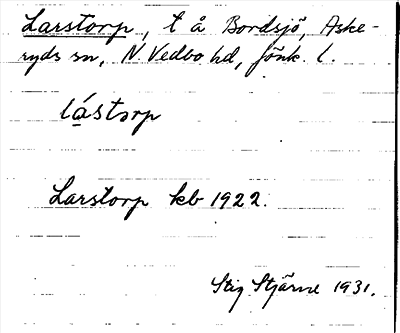 Larstorp, t å Bordsjö, Aske-
ryds sn, N. Vedbo hd, Jönk. l.
lástorp
Larstorp kb 1922.
Stig Stjärne 1931.